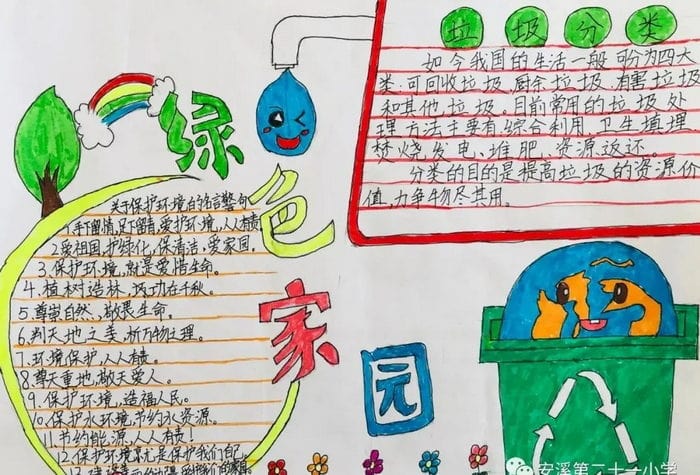 绿色家园
垃圾分类
如今我国的生活一般可分为四大
类:可回收垃圾、厨余垃圾、有害垃圾
和其他垃圾。目前常用的垃圾处
理方法主要有综合利用、卫生填埋、
焚烧发电、堆肥、资源返还。
分类的目的是提高垃圾的资源价
值,力争物尽其用。
关于保护环境的名言警句
1.手下留情,足下留青,爱护环境,人人有责
2.爱祖国,护绿化,保清洁,爱家园。
3.保护环境,就是爱惜生命。
4.植树造林,功在千秋。
5.尊重自然,敬畏生命。
6.判天地之美,析万物之理。
7.环境保护,人人有责。
8.尊天重地,敬天爱人。
9.保护环境,造福人民。
10.保护水环境,节约水资源。
11.节约能源,人人有责!
12.保护环境就是保护我们自己
安溪第二十一小学